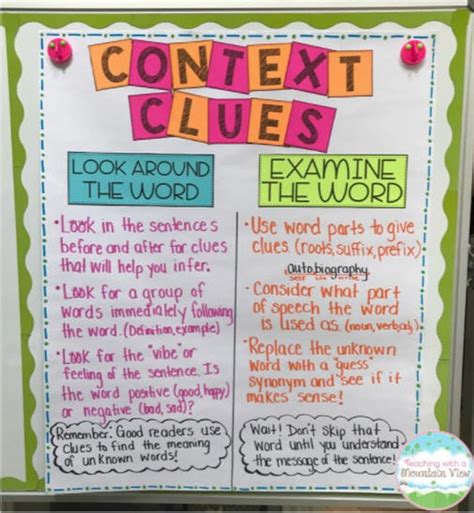 CONTEXT
CLUES
LOOK AROUND
THE WORD
• Look in the sentences
before and after for clues
that will help you infer.
• Look for a group of
words immediately following
the word. (Definition, example)
• Look for the "vibe" or
feeling of the sentence. Is
the word positive (good, happy)
or negative (bad, sad)?
Remember: Good readers use
clues to find the meaning
of unknown words!
EXAMINE
THE WORD
• Use word parts to give
clues. (roots, suffix, prefix)
autobiography
self life write
• Consider what part
of speech the word
is used as. (noun, verb, adj.)
• Replace the unknown
word with a "guess"
synonym and see if it
makes sense!
Wait! Don't skip that
word until you understand
the message of the sentence!
Teaching with a
Mountain View